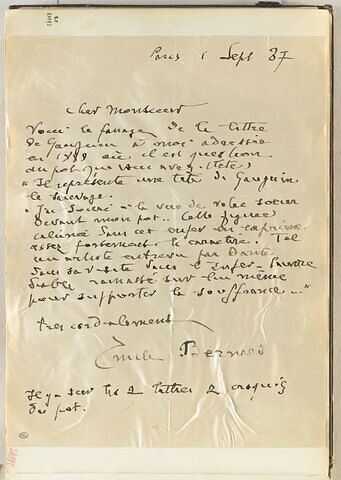 Paris 1 Sept 37
Cher Monsieur
Voici le passage de la lettre
de Gauguin à moi adressée
en 1889 où il est question
du pot que vous avez (tête)
"Il représente une tête de Gauguin
le sauvage.
de votre soeur
devant mon pot.. Cette figure
calcinée dans cet enfer en
assez fortement le caractère. Tel
un artiste entrevu par Dante
dans sa visite dans l'enfer. Pauvre
diable ramassé sur lui même
pour supporter la souffrance..."
très cordialement
Emile Bernard
Il y a sur les 2 lettres 2 croquis
du pot.